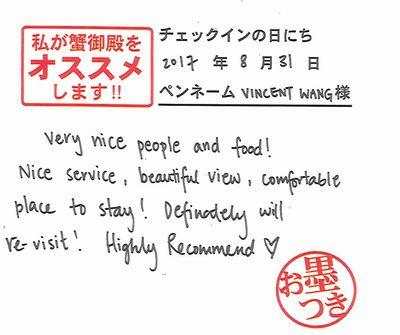 私が蟹御殿を
オススメ
します!!
チェックインの日にち
2017 年 8 月 31 日
ペンネーム VINCENT WANG 様
Very nice people and food!
Nice service, beautiful view, comfortable
place to stay! Definadely will
re-visit! Highly Recommend ♡
お墨つき